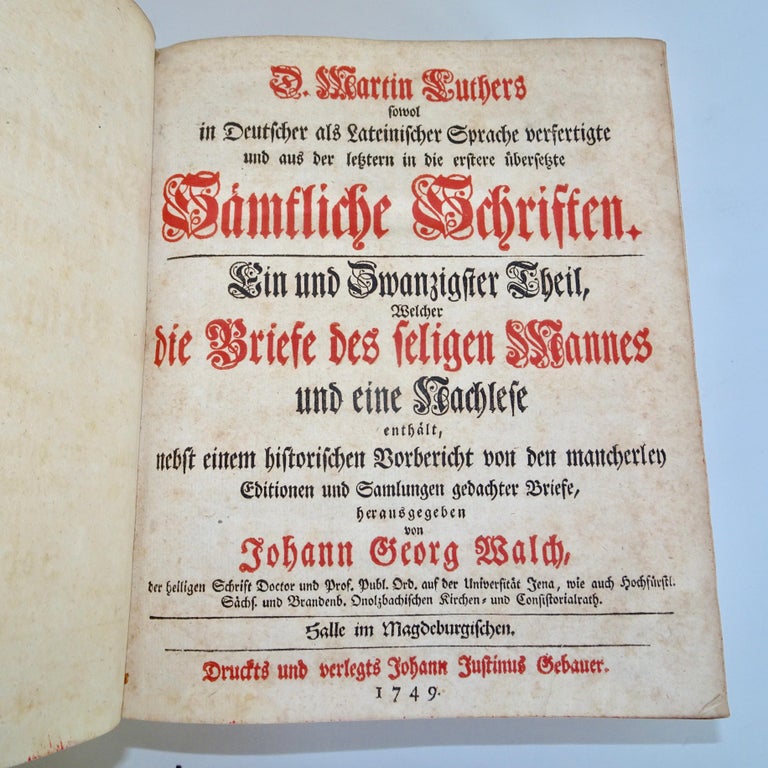 D. Martin Luthers
sowol
in Deutscher als Lateinischer Sprache verfertigte
und aus der letztern in die erstere übersetzte
Sämtliche Schriften.
Ein und Zwanzigster Theil,
Welcher
die Briefe des seligen Mannes
und eine Nachlese
enthält,
nebst einem historischen Vorbericht von den mancherley
Editionen und Samlungen gedachter Briefe,
herausgegeben
von
Johann Georg Walch,
der heiligen Schrift Doctor und Prof. Publ. Ord. auf der Universität Jena, wie auch Hochfürstl.
Sächs. und Brandenb. Onolzbachischen Kirchen- und Consistorialrath.
Halle im Magdeburgischen.
Druckts und verlegts Johann Justinus Gebauer.
1749.